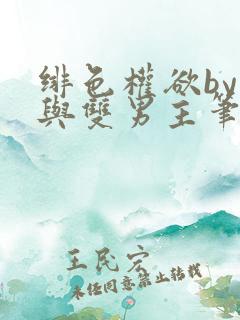 緋色權欲by
與雙男主筆
王民宏
未任同意禁止转载